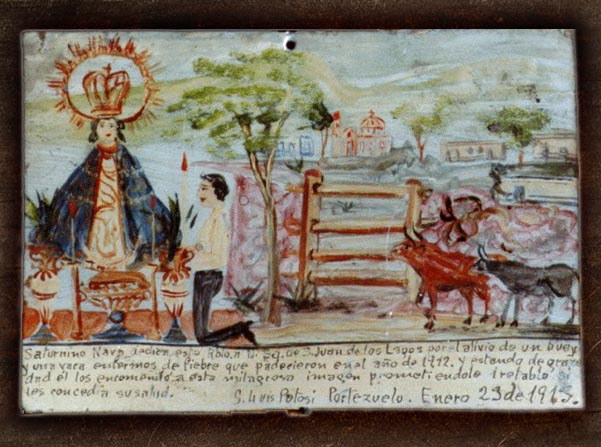 Saturnino Nava dedica esto Rblo. a N. Sq. de S. Juan de los Lagos por el alivio de un buey
y una vaca enfermos de fiebre que padecieron en el año de 1912. y estando de grave
dad el los encomendo a esta milagrosa imagen prometiendole 1 retablo si
les concedia su salud. S. Luis Potosi Portezuelo. Enero 23 de 1913.